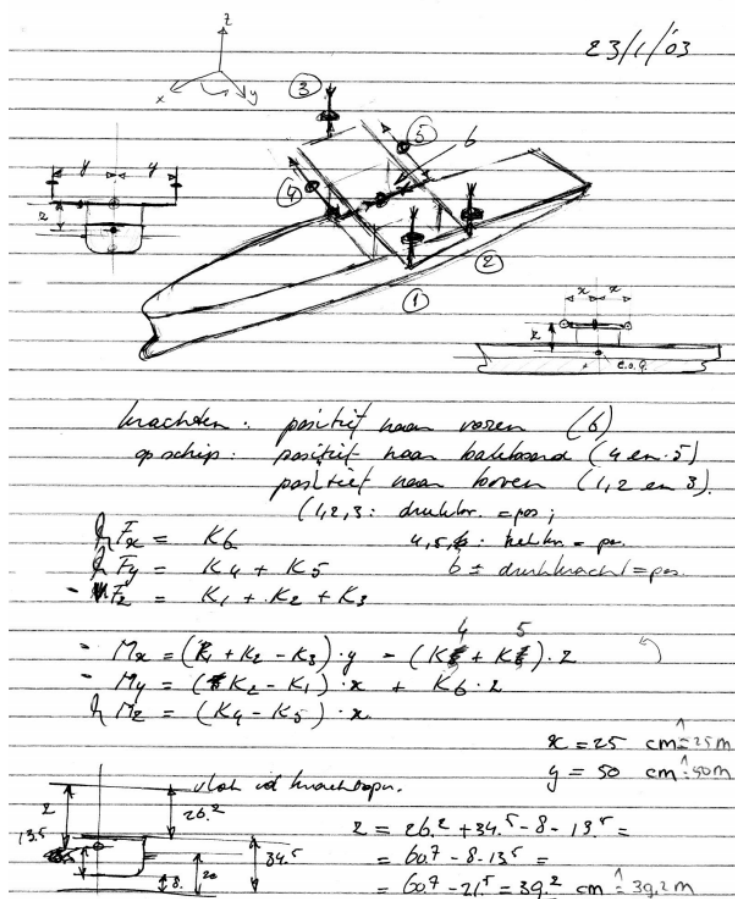 23/1/'03
z
x
y
3
5
6
4
y y
z
2
1
x x
z
c.o.g.
krachten: positief naar voren (6)
op schip: positief naar bakboord (4 en 5)
positief naar boven (1, 2 en 3).
(1,2,3: drukkr. = pos;
Fx = K6
4,5,6: trekkr = pos.
Fy = K4 + K5
6 = drukkracht = pos.
- Fz = K1 + K2 + K3
4 5
- Mx = (K1 + K2 - K3) · y - (K + K) · z
- My = (K2 - K1) · x + K6 · z
Mz = (K4 - K5) · x
x = 25 cm ≙ 25 m
y = 50 cm ≙ 50 m
vlak vd krachtopn.
z
26.2
13.5
z = 26.2 + 34.5 - 8 - 13.5 =
34.5
= 60.7 - 8 - 13.5 =
8. 20
= 60.7 - 21.5 = 39.2 cm ≙ 39,2 m